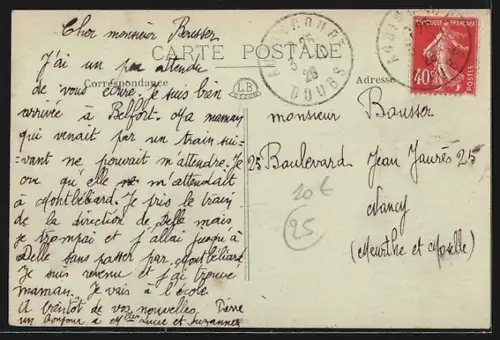 Cher monsieur Bousser
CARTE POSTALE
J'ai un peu attendu
Correspondance
LB
Adresse
DOUBS
40c
de vous écrire. Je suis bien
arrivée à Belfort. Ma maman
qui venait par un train sui-
-vant ne pouvait m'attendre. Je
cru qu'elle m'attendait
à Montbéliard. Je pris le train
de la direction de Delle mais
je trompai et j'allai jusqu'à
Delle sans passer par Montbéliard
Je suis revenu et j'ai trouvé
maman. Je vais à l'école.
A bientôt de vos nouvelles. Pierre
un bonjour à Melles Lucie et Suzanne
monsieur
Bousser
25 Boulevard Jean Jaurès 25
Nancy
(Meurthe et Moselle)
10€
25